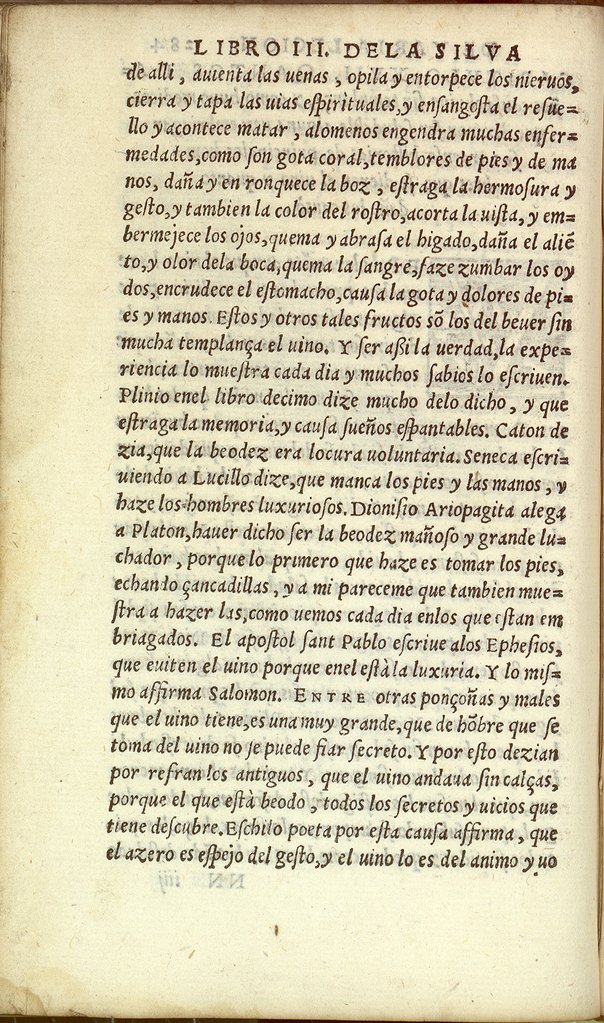 LIBRO III. DELA SILVA
de alli, auienta las uenas, opila y entorpece los nieruõs,
cierra y tapa las uias eſpirituales, y enſangoſta el reſue=
llo y acontece matar, alomenos engendra muchas enfer=
medades, como ſon gota coral, temblores de pies y de ma
nos, daña y en ronquece la boz, eſtraga la hermoſura y
geſto, y tambien la color del roſtro, acorta la uiſta, y em=
bermejece los ojos, quema y abraſa el higado, daña el aliẽ
to, y olor dela boca, quema la ſangre, faze zumbar los oy
dos, encrudece el eſtomacho, cauſa la gota y dolores de pi=
es y manos. Eſtos y otros tales fructos sõ los del beuer ſin
mucha templança el uino. Y ſer aßi la verdad, la expe=
riencia lo mueſtra cada dia y muchos ſabios lo eſcriuen.
Plinio enel libro decimo dize mucho delo dicho, y que
eſtraga la memoria, y cauſa ſueños eſpantables. Caton de
zia, que la beodez era locura voluntaria. Seneca eſcri=
uiendo a Lucillo dize, que manca los pies y las manos, y
haze los hombres luxurioſos. Dioniſio Ariopagita alega
a Platon, hauer dicho ſer la beodez mañoſo y grande lu=
chador, porque lo primero que haze es tomar los pies,
echando çancadillas, y a mi pareceme que tambien mue=
ſtra a hazer las, como uemos cada dia enlos que eſtan em
briagados. El apoſtol ſant Pablo eſcriue alos Epheſios,
que euiten el uino porque enel eſtà la luxuria. Y lo miſ=
mo affirma Salomon. ENTRE otras ponçoñas y males
que el uino tiene, es una muy grande, que de hõbre que ſe
toma del uino no ſe puede fiar secreto. Y por eſto dezian
por refran los antiguos, que el uino andaua ſin calças,
porque el que eſtà beodo, todos los ſecretos y uicios que
tiene deſcubre. Eſchilo poeta por eſta cauſa affirma, que
el azero es eſpejo del geſto, y el uino lo es del animo y uo